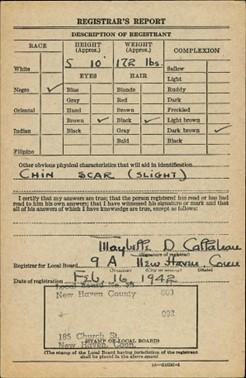 REGISTRAR'S REPORT
DESCRIPTION OF REGISTRANT
RACE HEIGHT (Approx.) WEIGHT (Approx.) COMPLEXION
5 10 172 lbs.
White EYES HAIR Sallow
Light
Negro ✓ Blue Blonde Ruddy
Gray Red Dark
Oriental Hazel Brown Freckled
Brown ✓ Black ✓ Light brown
Indian Black Gray Dark brown ✓
Bald Black
Filipino
Other obvious physical characteristics that will aid in identification
CHIN SCAR (SLIGHT)
I certify that my answers are true; that the person registered has read or has had
read to him his own answers; that I have witnessed his signature or mark and that
all of his answers of which I have knowledge are true, except as follows:
D
(Signature of registrar)
Registrar for Local Board 9 A New Haven, Conn
(Number) (City or county) (State)
Date of registration Feb 16 1942
New Haven County
185 Church St
New Haven, Conn.
(STAMP OF LOCAL BOARD)
(The stamp of the Local Board having jurisdiction of the registrant
shall be placed in the above space)